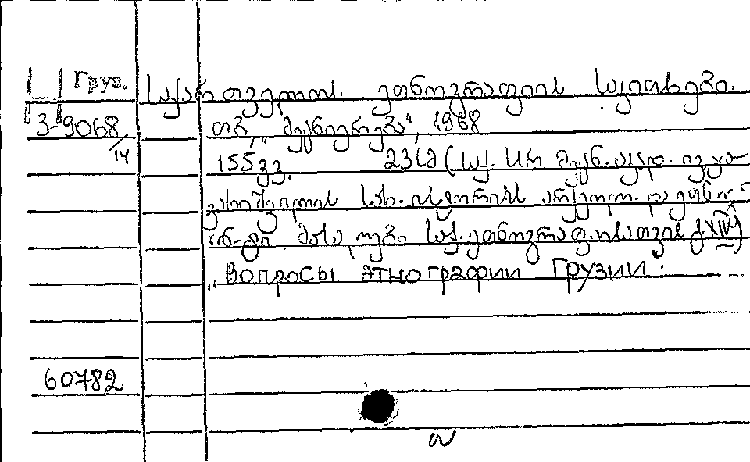 Груз. საქართველოს ეთნოგრაფიის საკითხები.
3-9068/14 თბ., „მეცნიერება", 1968
155 გვ. 23 სმ (საქ. სსრ მეცნ. აკად. ივ. ჯავა-
ხიშვილის სახ. ისტორიის, არქეოლ. და ეთნოგრ.
ინ-ტი მასალები საქ. ეთნოგრაფიისათვის XIV)
„Вопросы этнографии Грузии.
60782